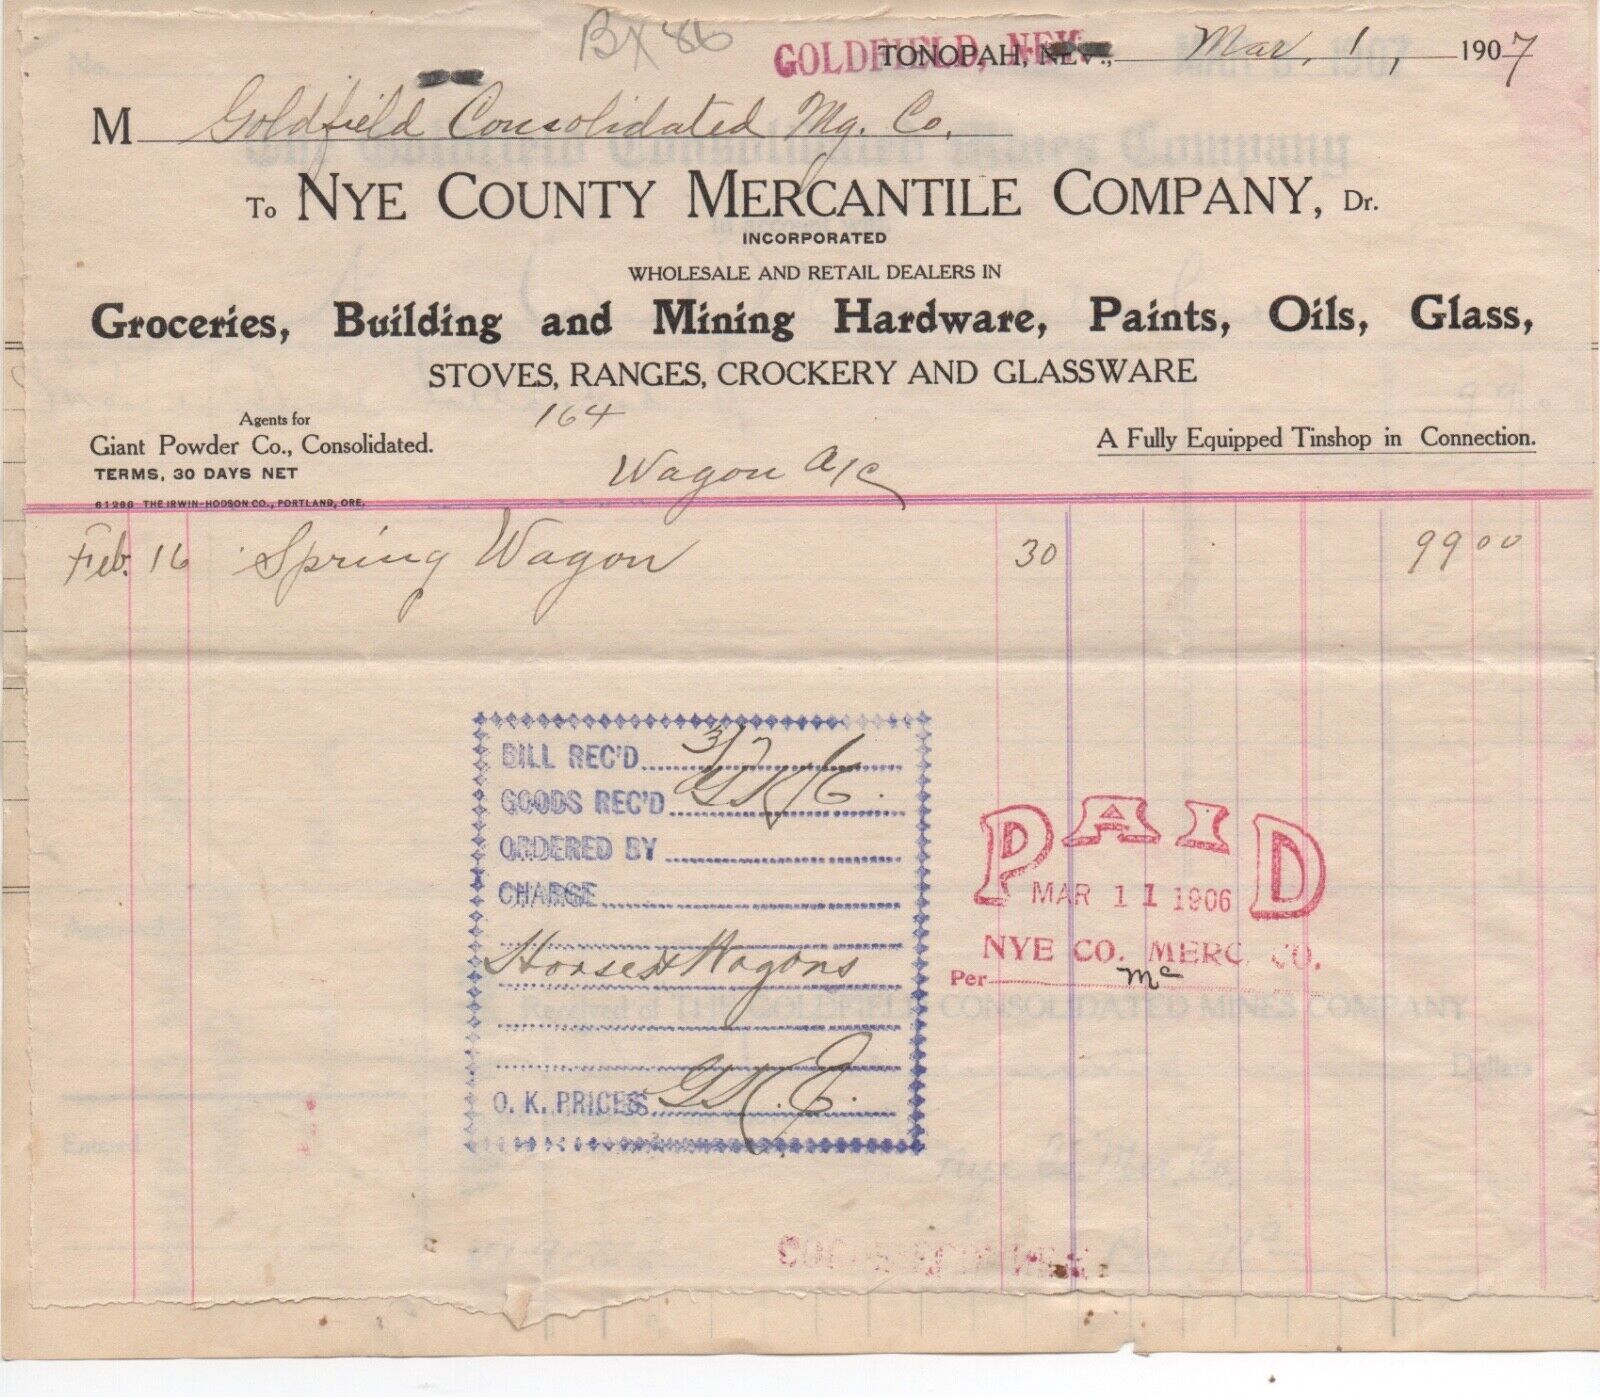 BX 86
GOLDFIELD, NEV.
TONOPAH, NEV., Mar. 1, 1907
M Goldfield Consolidated Mg. Co.
To NYE COUNTY MERCANTILE COMPANY, Dr.
INCORPORATED
WHOLESALE AND RETAIL DEALERS IN
Groceries, Building and Mining Hardware, Paints, Oils, Glass,
STOVES, RANGES, CROCKERY AND GLASSWARE
164
Agents for
Giant Powder Co., Consolidated.
A Fully Equipped Tinshop in Connection.
TERMS, 30 DAYS NET
Wagon a/c
61266 THE IRWIN-HODSON CO., PORTLAND, ORE.
Feb. 16 Spring Wagon 30 99 00
BILL REC'D 3/7
GOODS REC'D
ORDERED BY
CHARGE
Horses & Wagons
O. K. PRICES
PAID
MAR 11 1906
NYE CO. MERC. CO.
Per Mc
Received of THE GOLDFIELD CONSOLIDATED MINES COMPANY
Dollars
Entered